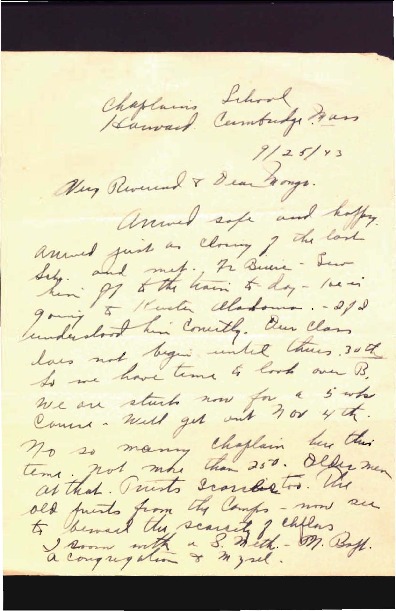 Chaplains School
Harvard Cambridge Mass
9/25/43
Very Reverend & Dear Monsgr.
Arrived safe and happy.
arrived just as closing of the last
and met. Fr
him off to the train to day - he is
going to Alabama. - If I
understood him correctly. Our class
does not begin until thurs. 30th
So we have time to look over B.
We are stuck now for a 5 wks
course - will get out Nov 4th.
No so many chaplain here this
time. Not more than 250. Older men
at that. Priests scarce too. The
old priests from the Camps - now see
to the scarcity of
I room with a S. Meth. - M. Bapt.
a congregation & Myself.